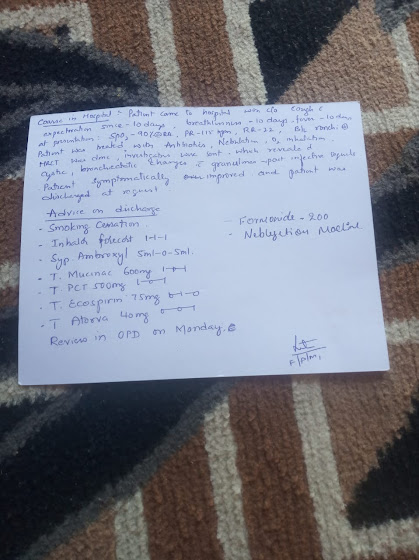 Course in Hospital :- Patient came to hospital with c/o cough c̄
expectoration since - 10 days, breathlessness - 10 days, fever - 10 days
at presentation, SpO2 - 90% @ RA, PR - 115 bpm, RR - 22, B/L ronchi ⊕
Patient was treated with Antibiotics, Nebulation, O2 inhalation
HRCT was done, investigations were sent which revealed
cystic, bronchiectatic changes c̄ granulomas - post infective sequele
Patient symptomatically improved and patient was
discharged at request
Advice on discharge
- Smoking Cessation.
- Inhaler forecort 1-1-1
- Syp. Ambroxyl 5ml-0-5ml.
- T. Mucinac 600mg 1-1-1
- T. PCT 500mg 1-0-1
- T. Ecosprin 75mg 0-1-0
- T Atorva 40mg 0-0-1
Review in OPD on Monday.
- Formonide - 200
- Nebulisation Machine